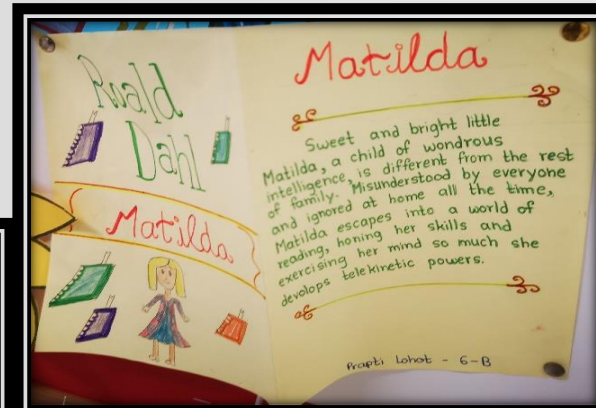 Roald
Dahl
Matilda
Matilda
Sweet and bright little
Matilda, a child of wondrous
intelligence, is different from the rest
of family. Misunderstood by everyone
and ignored at home all the time,
Matilda escapes into a world of
reading, honing her skills and
exercising her mind so much she
devolops telekinetic powers.
Prapti Lohot - 6-B